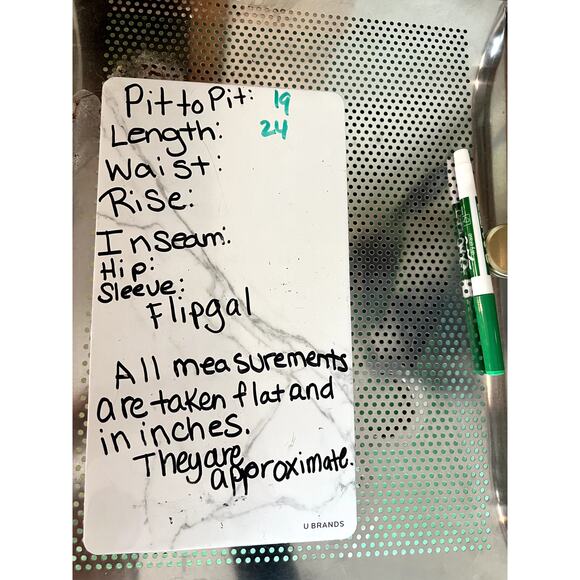 Pit to Pit: 19
Length: 24
Waist:
Rise:
Inseam:
Hip:
Sleeve:
Flipgal
All measurements
are taken flat and
in inches.
They are
approximate.
U BRANDS
EXPO